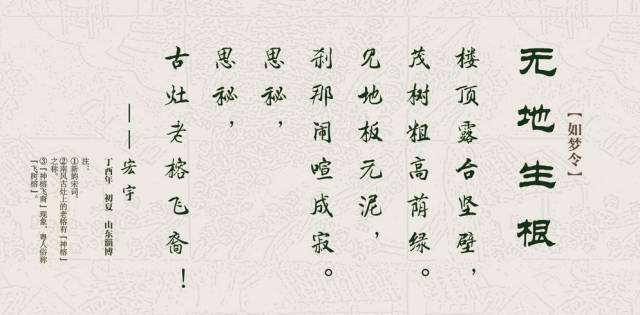 【如梦令】
无地生根
楼顶露台坚壁，
茂树粗高荫绿。
见地板无泥，
刹那闹喧成寂。
思秘，
思秘，
古灶老榕飞裔！
——宏宇
丁酉年 初夏 山东淄博
注：
①新韵宋词。
②南风古灶上的老榕有『神榕』
之称。
③『神榕飞裔』现象，粤人俗称
『飞树榕』。